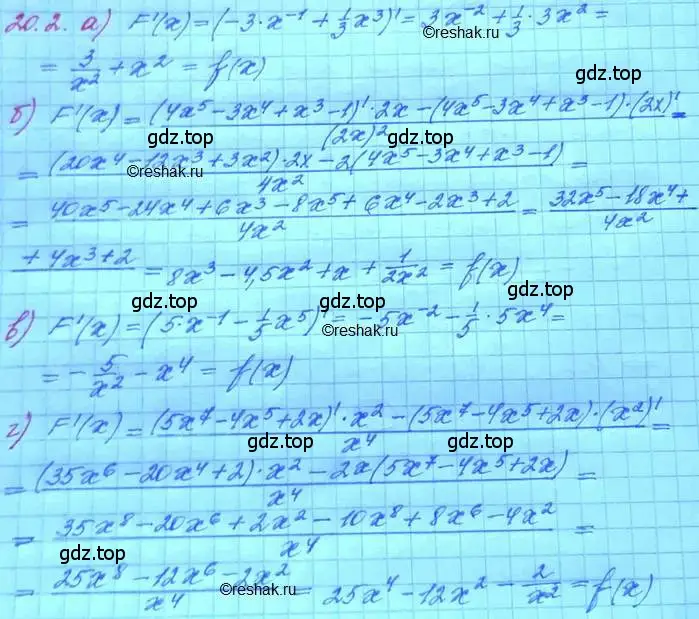 20.2. а) F'(x) = (-3·x⁻¹ + 1/3 x³)' = 3x⁻² + 1/3 · 3x² =
©reshak.ru
= 3/x² + x² = f(x)
б) F'(x) = ((4x⁵ - 3x⁴ + x³ - 1)' · 2x - (4x⁵ - 3x⁴ + x³ - 1) · (2x)')/(2x)² =
gdz.top gdz.top
= ((20x⁴ - 12x³ + 3x²) · 2x - 2(4x⁵ - 3x⁴ + x³ - 1))/4x² =
©reshak.ru
= (40x⁵ - 24x⁴ + 6x³ - 8x⁵ + 6x⁴ - 2x³ + 2)/4x² = (32x⁵ - 18x⁴ +
gdz.top gdz.top
+ 4x³ + 2)/4x² = 8x³ - 4,5x² + x + 1/2x² = f(x)
gdz.top gdz.top
в) F'(x) = (5·x⁻¹ - 1/5 x⁵)' = -5x⁻² - 1/5 · 5x⁴ =
©reshak.ru
= -5/x² - x⁴ = f(x)
gdz.top
г) F'(x) = ((5x⁷ - 4x⁵ + 2x)' · x² - (5x⁷ - 4x⁵ + 2x) · (x²)')/x⁴ =
gdz.top gdz.top
= ((35x⁶ - 20x⁴ + 2) · x² - 2x(5x⁷ - 4x⁵ + 2x))/x⁴ =
= (35x⁸ - 20x⁶ + 2x² - 10x⁸ + 8x⁶ - 4x²)/x⁴ =
gdz.top gdz.top
= (25x⁸ - 12x⁶ - 2x²)/x⁴ = 25x⁴ - 12x² - 2/x² = f(x)
©reshak.ru